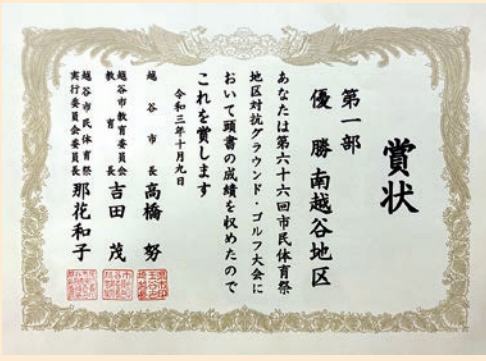 賞状
第一部
優勝 南越谷地区
あなたは第六十六回市民体育祭
地区対抗グラウンド・ゴルフ大会に
おいて頭書の成績を収めたので
これを賞します
令和三年十月九日
越谷市長 高橋 努
越谷市教育委員会
教育長 吉田 茂
越谷市民体育祭
実行委員会委員長 那花和子